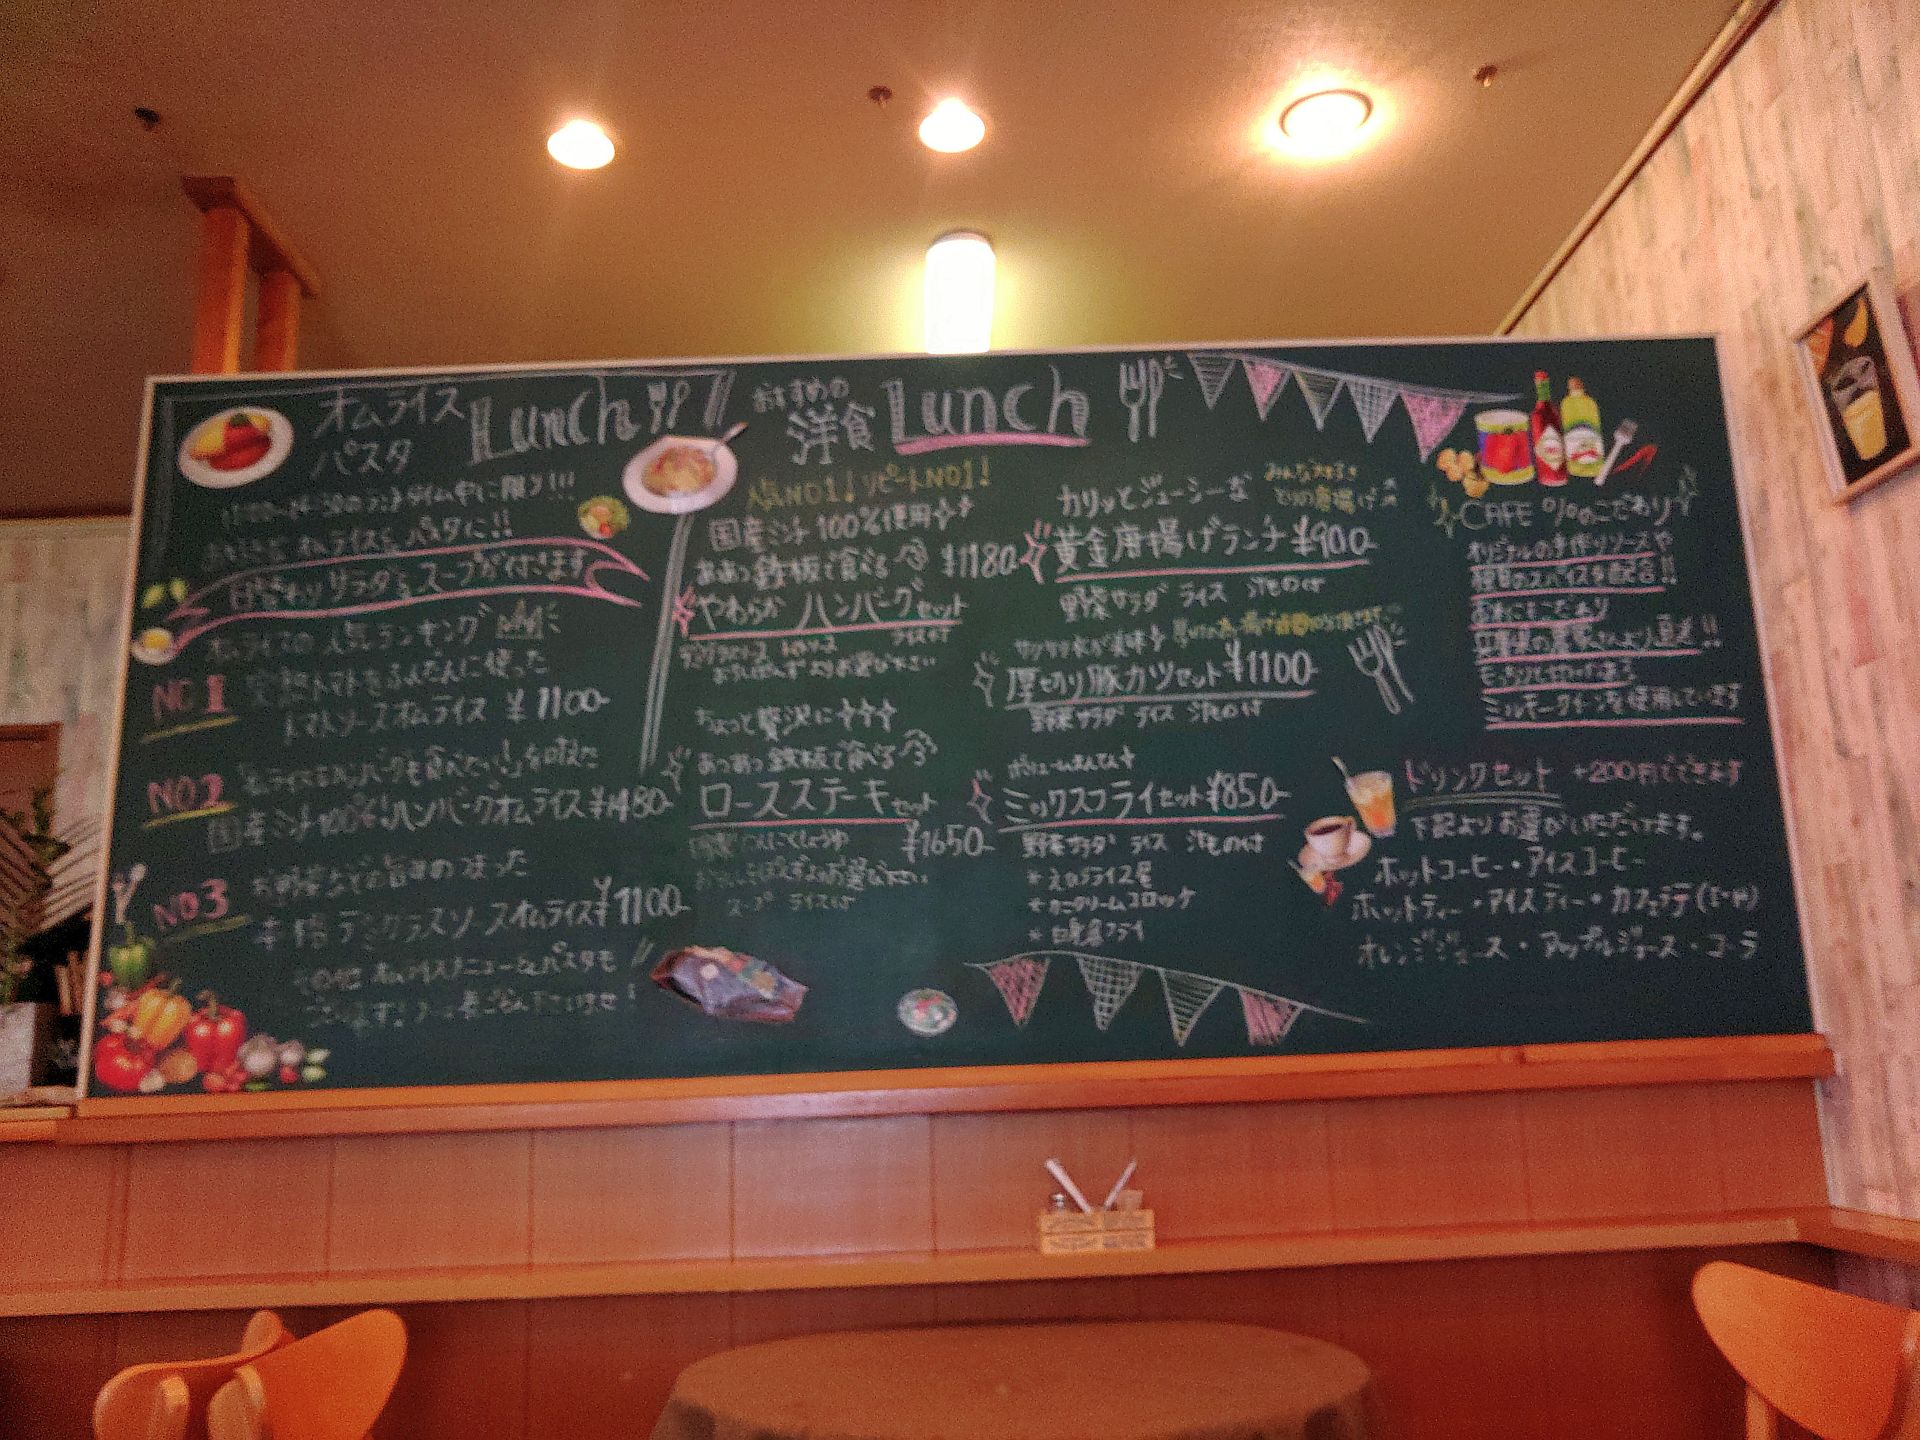 オムライス
パスタ
Lunch
日替わりサラダとスープが付きます
オムライスの人気ランキング
NO1
完熟トマトをふんだんに使った
トマトソースオムライス ¥1100-
NO2
国産ミンチ100% ハンバーグオムライス ¥1480-
NO3
本格デミグラスソースオムライス ¥1100-
その他オムライスメニュー&パスタも
おすすめの
洋食 Lunch
人気NO1! リピートNO1!
国産ミンチ100%使用
あつあつ鉄板で食べる ¥1180-
やわらかハンバーグセット
ライス付
ちょっと贅沢に
あつあつ鉄板で食べる
ロースステーキセット
¥1650-
スープ ライス付
カリッとジューシーな
みんな大好き
黄金唐揚げランチ ¥900-
野菜サラダ ライス 汁もの付
厚切り豚カツセット ¥1100-
野菜サラダ ライス 汁もの付
ボリュームまんてん
ミックスフライセット ¥850-
野菜サラダ ライス 汁もの付
*カニクリームコロッケ
*白身魚フライ
CAFE
こだわり
オリジナルの手作りソースや
独自のスパイスを配合!!
お米にもこだわり
兵庫県の農家さんより直送!!
ミルキークイーンを使用しています
ドリンクセット +200円でできます
下記よりお選びいただけます。
ホットコーヒー・アイスコーヒー
ホットティー・アイスティー・カフェラテ
オレンジジュース・アップルジュース・コーラ